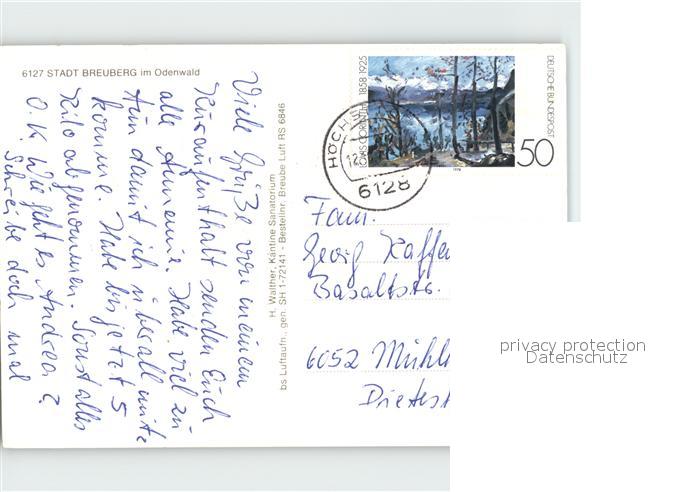 6127 STADT BREUBERG im Odenwald
Viele Grüße von meinem
Kuraufenthalt senden Euch
alle Annemie. Habe viel zu
tun damit ich überall mitte
komme. Habe bis jetzt 5
Kilo abgenommen. Sonst alles
O.K. Wie geht es Andrea?
Schreibe doch mal
H. Walther, Kantine Sanatorium
bs Luftaufn., gen. SH 1-72141 - Bestellnr. Breube Luft RS 6846
LOVIS CORINTH 1858-1925
DEUTSCHE BUNDESPOST
50
1978
HÖCHS
12.
6128
Fam.
Georg Kaffen
Basaltstr.
6052 Mühlh
Dietest
privacy protection
Datenschutz